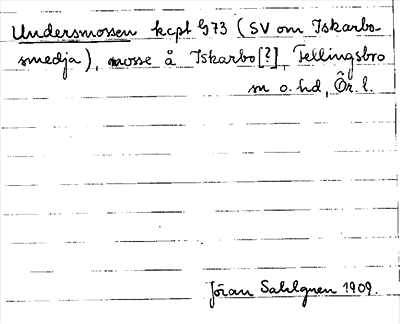 Undersmossen kcpt G73 (SV om Iskarbo-
smedja), mosse å Iskarbo[?], Fellingsbro
sn o. hd, Ör. l.
Jöran Sahlgren 1909.